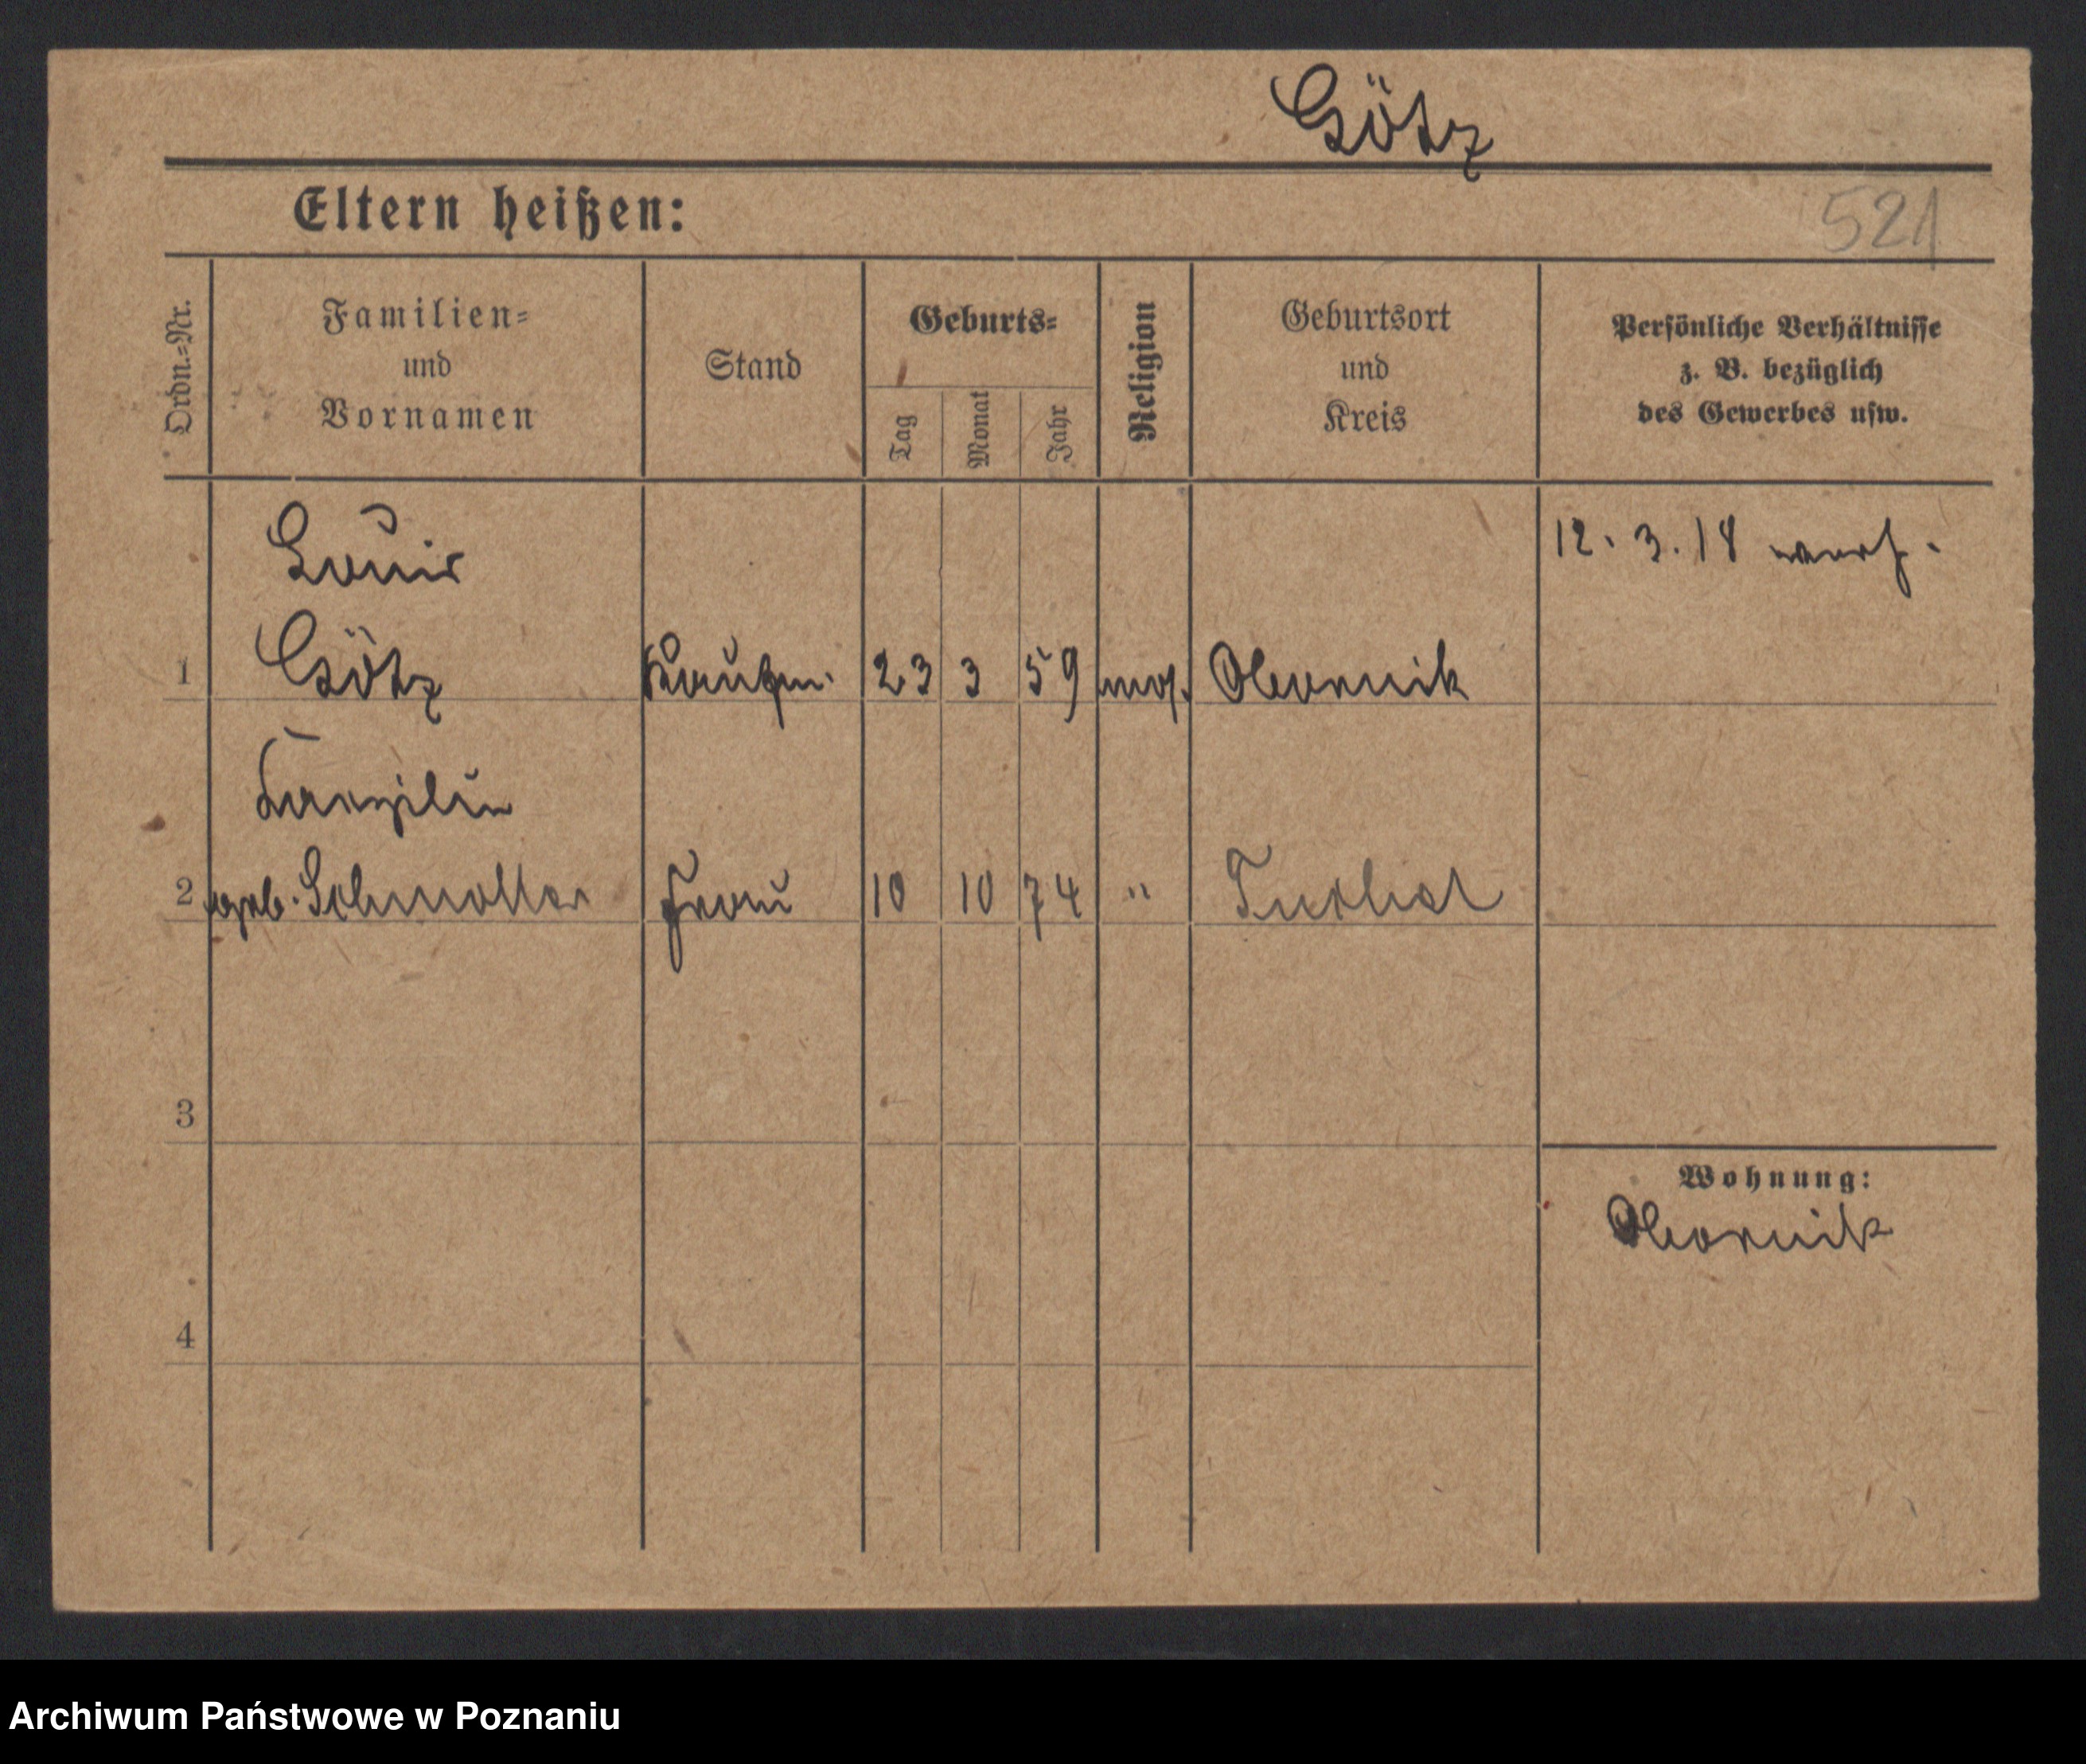 Götz
Eltern heißen:
521
Ordn.=Nr.
Familien=
und
Vornamen
Stand
Geburts=
Tag
Monat
Jahr
Religion
Geburtsort
und
Kreis
Persönliche Verhältnisse
z. B. bezüglich
des Gewerbes usw.
Louis
12. 3. 18
1 Götz Kaufm. 23 3 59 mos. Obornik
2 geb. Schmoller Frau 10 10 74 "
3
Wohnung:
Obornik
4
Archiwum Państwowe w Poznaniu